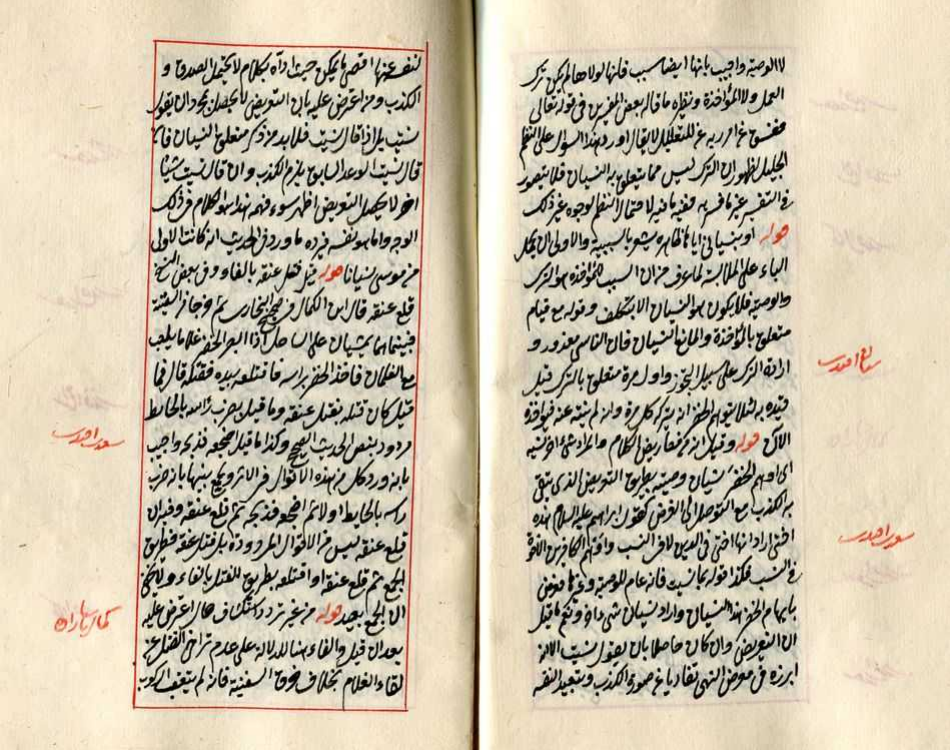 لا الوصية واجيب بانها ايضا سبب فانها لولاها لم يكن ترك
العمل ولا المؤاخذة ونظيره ما قاله بعض المفسرين في قوله تعالى
ففسق عن امر ربه للتعليل لا يقال اورد هذا السؤال على النظم
الجليل لظهور ان الترك ليس مما يتعلق به النسيان فلا يتصور
في التفسير غير ما فسر به ففيه ما فيه لاحتمال النظم لوجوه غير ذلك
قوله او بنسياني اياها ظاهره يشعر بالسببية والاولى ان يحمل
الباء على الملابسة لما عرف من ان السبب للمؤاخذة هو الترك
والوصية فلا يكون هو النسيان الا بتكلف وقوله مع قيام
متعلق بالمؤاخذة والمانع النسيان فان الناسي معذور و
ارادة الترك على سبيل التجوز واول مرة متعلق بالترك قيل
قيده به لئلا يتوهم الخضر انه يترك كل مرة وان لم ينبه عنه فيؤاخذه
الان قوله وقيل انه من معاريض الكلام والمراد شئ اخر نسيه
اي اوهم الخضر نسيان وصيته بطريق التعريض الذي يتقى
به الكذب مع التوصل الى الغرض كقول ابراهيم عليه السلام هذه
اختي اراد انها اختي في الدين لا في النسب واوهم الكافرين الاخوة
في النسب فكذا قوله بما نسيت فانه عام للوصية وغيرها فعرض
بايهام الخضر هذا النسيان واراد نسيان شئ
ان التعريض وان كان حاصلا بان يقول نسيت الا انه
ابرزه في معرض النهي تفاديا عن صورة الكذب وتبعيد النفسه
لنفسه عنها اقصى ما يمكن حيث اداه بكلام لا يحتمل الصدق و
الكذب ومن اعترض عليه بان التعريض لا يحصل بمجرد ان يقول
نسيت لم اذا قال نسيت فلا بد من ذكر متعلق النسيان فان
قال نسيت الوعد السابق يلزم الكذب وان قال نسيت شيئا
اخر لا يحصل التعريض اظهر سوء فهمه هذا هو الكلام في ذلك
الوجه واما هو نفسه فيرده ما ورد في الحديث انه كانت الاولى
من موسى نسيانا قوله قيل فتل عنقه بالفاء وفي بعض النسخ
قلع عنقه قال ابن الكمال في صحيح البخاري ثم خرجا من السفينة
فبينما هما يمشيان على الساحل اذا ابصر الخضر غلاما يلعب
مع الغلمان فاخذ الخضر براسه فاقتلعه بيده فقتله قال فما
قيل كان قتله بفتل عنقه وما قيل بضرب راسه بالحائط
مردود بنص الحديث الصحيح وكذا ما قيل اضجعه فذبحه واجيب
بانه ورد كل من هذه الاقوال في الاثر وجمع بينها بانه ضرب
راسه بالحائط اولا ثم اضجعه فذبحه ثم قلع عنقه وفيه ان
قلع عنقه ليس من الاقوال المردودة بل فتل عنقه فطريق
الجمع ثم قلع عنقه او اقتلعه بطريق الفتل بالفاء ولا يخفى
ان الجمع بعيد قوله من غير ترو واستكشاف حال اعترض عليه
بعد ان قيل والفاء هنا للدلالة على عدم تراخي القتل عن
لقاء الغلام بخلاف خرق السفينة فانه لم يتعقب الركوب